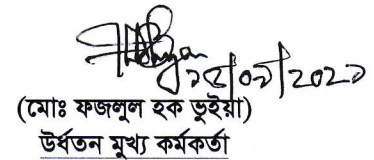 (মোঃ ফজলুল হক ভুইয়া)
উর্ধতন মুখ্য কর্মকর্তা